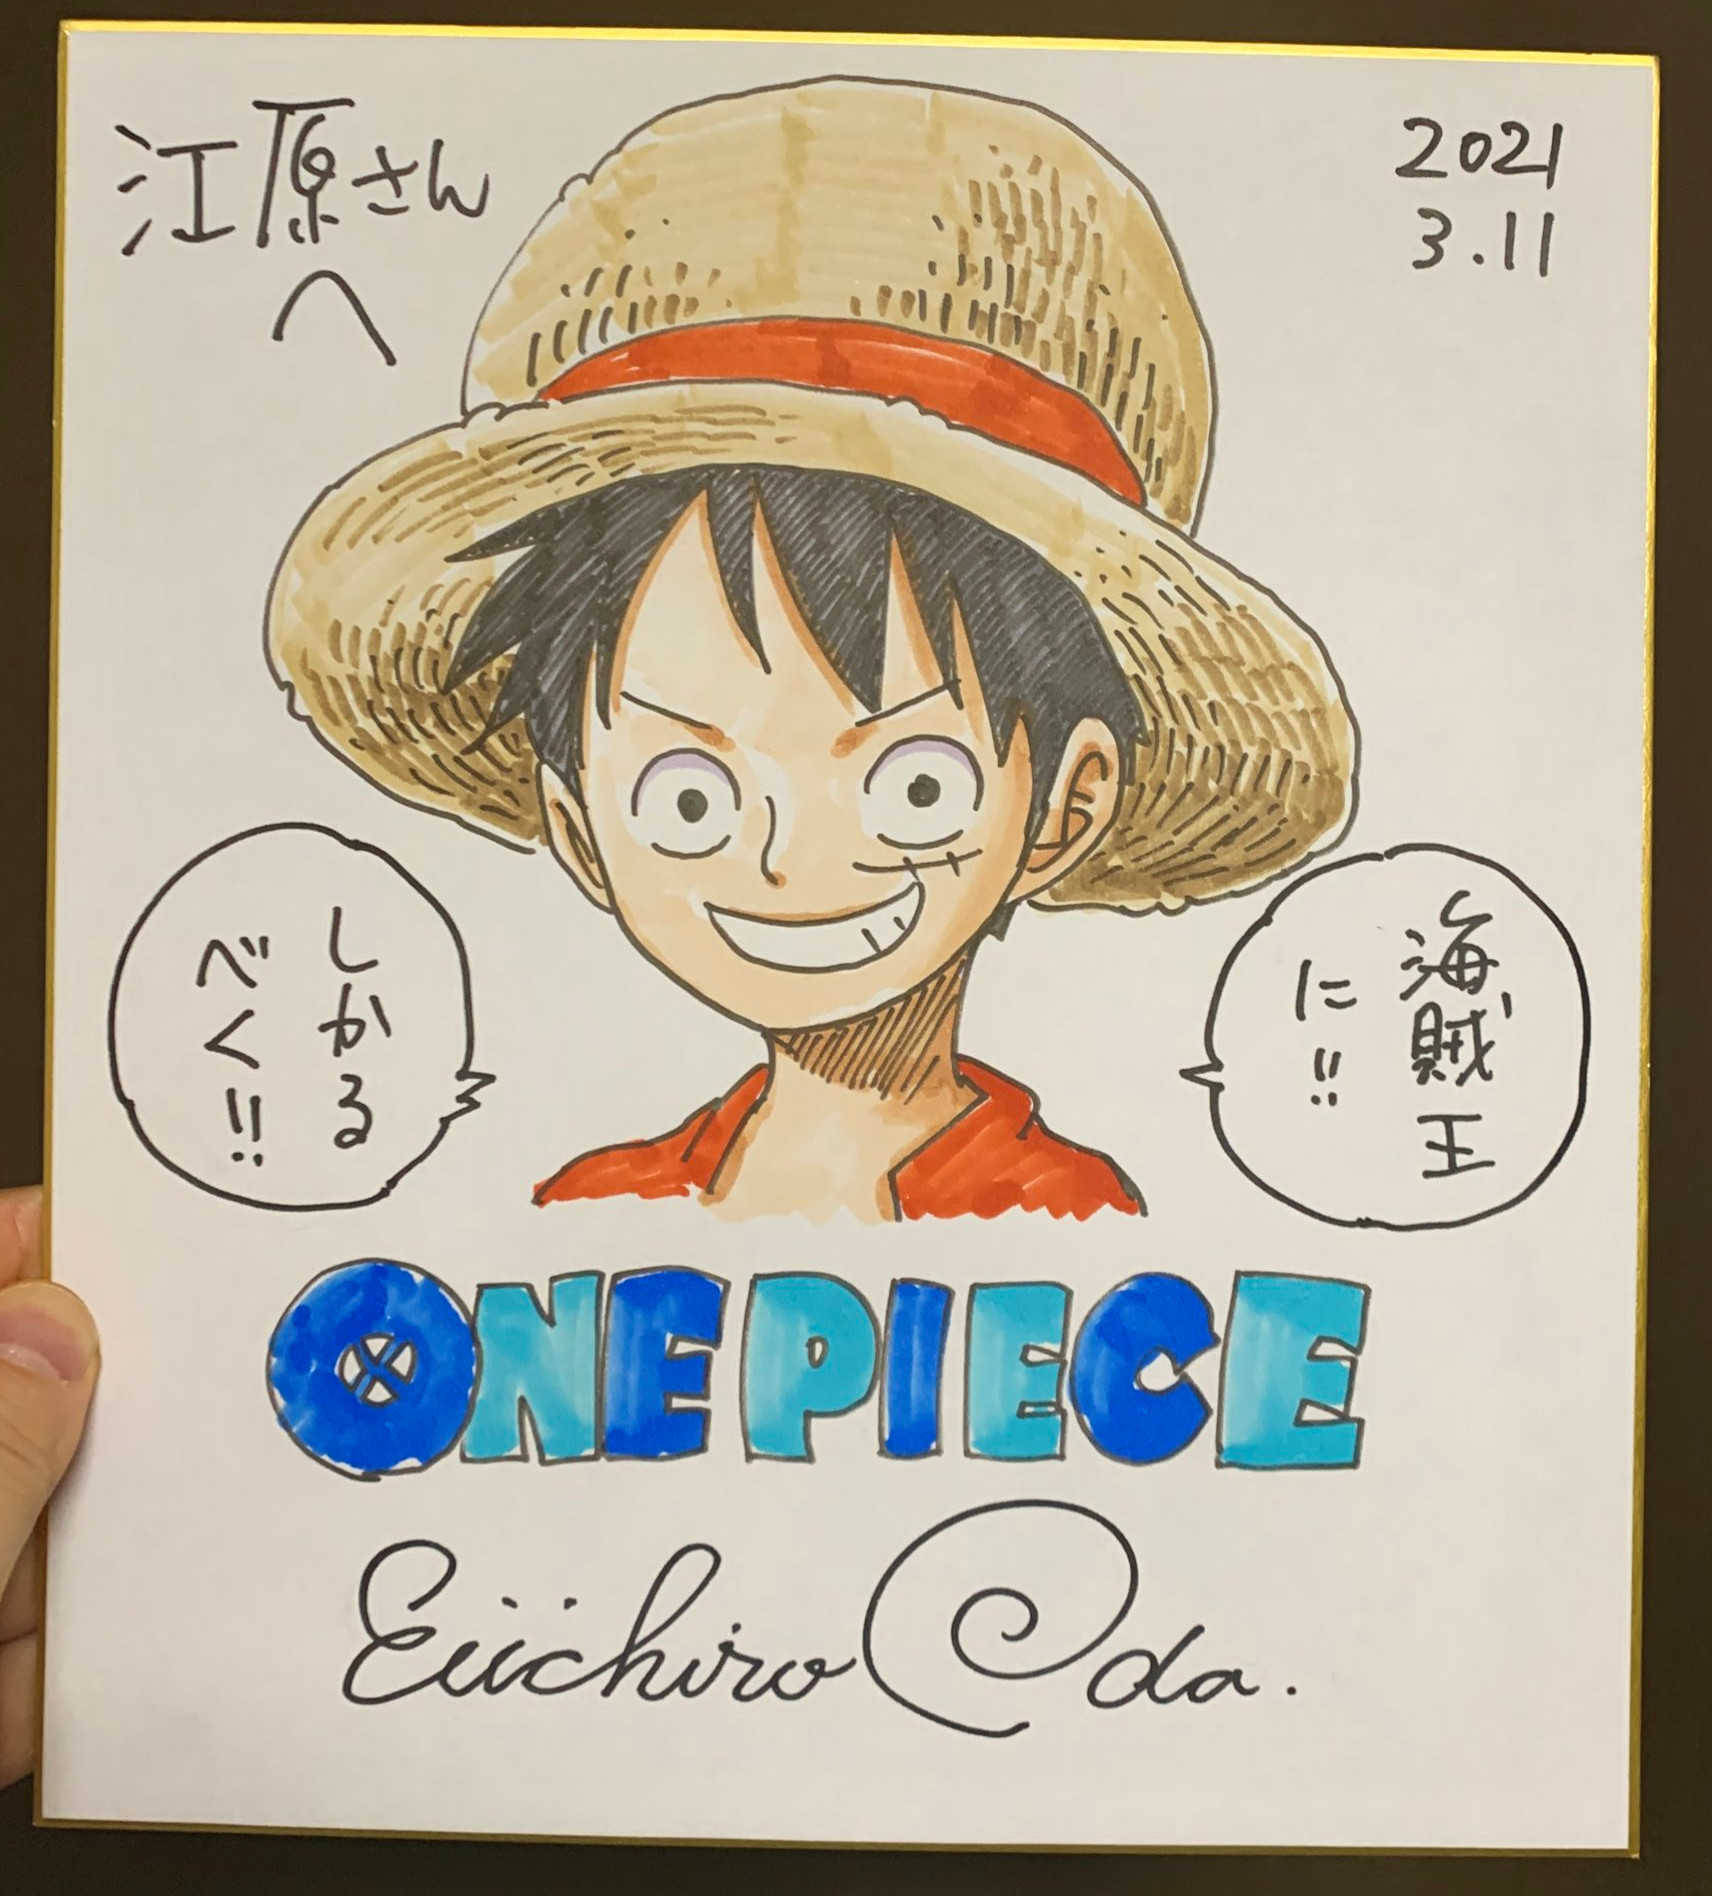 江原さん
へ
2021
3.11
海賊王
に!!
しかる
べく!!
ONE PIECE
Eiichiro Oda.